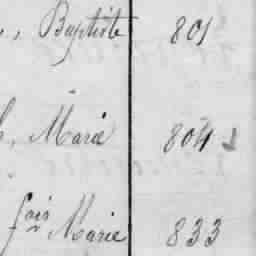 , Baptiste 801
, Marie 804
fois Marie 833